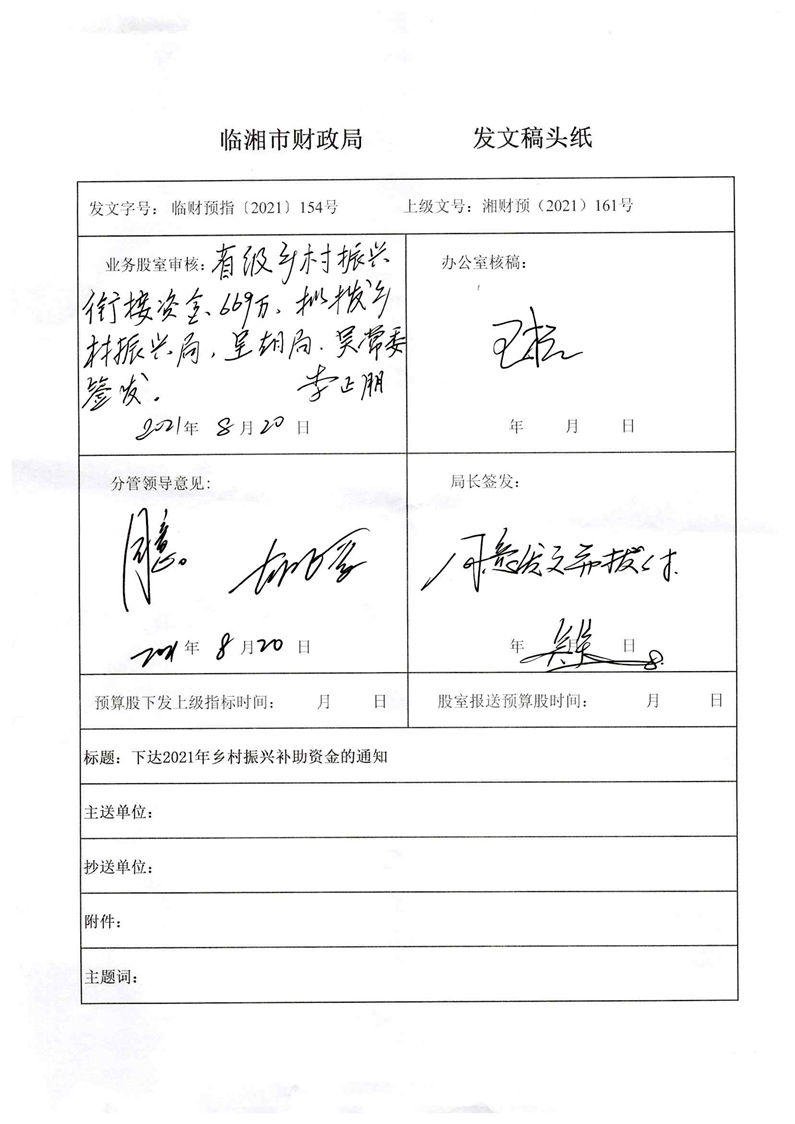 临湘市财政局 发文稿头纸
发文字号: 临财预指〔2021〕154号 上级文号: 湘财预（2021）161号
业务股室审核: 省级乡村振兴
衔接资金669万、拟拨乡
村振兴局，呈胡局、吴常委
签发。 李正朋
2021年 8月20日
办公室核稿:
年 月 日
分管领导意见:
同意。
2021年 8月20日
局长签发:
同意发文并拨付.
年 月 日
预算股下发上级指标时间: 月 日
股室报送预算股时间: 月 日
标题: 下达2021年乡村振兴补助资金的通知
主送单位:
抄送单位:
附件:
主题词: